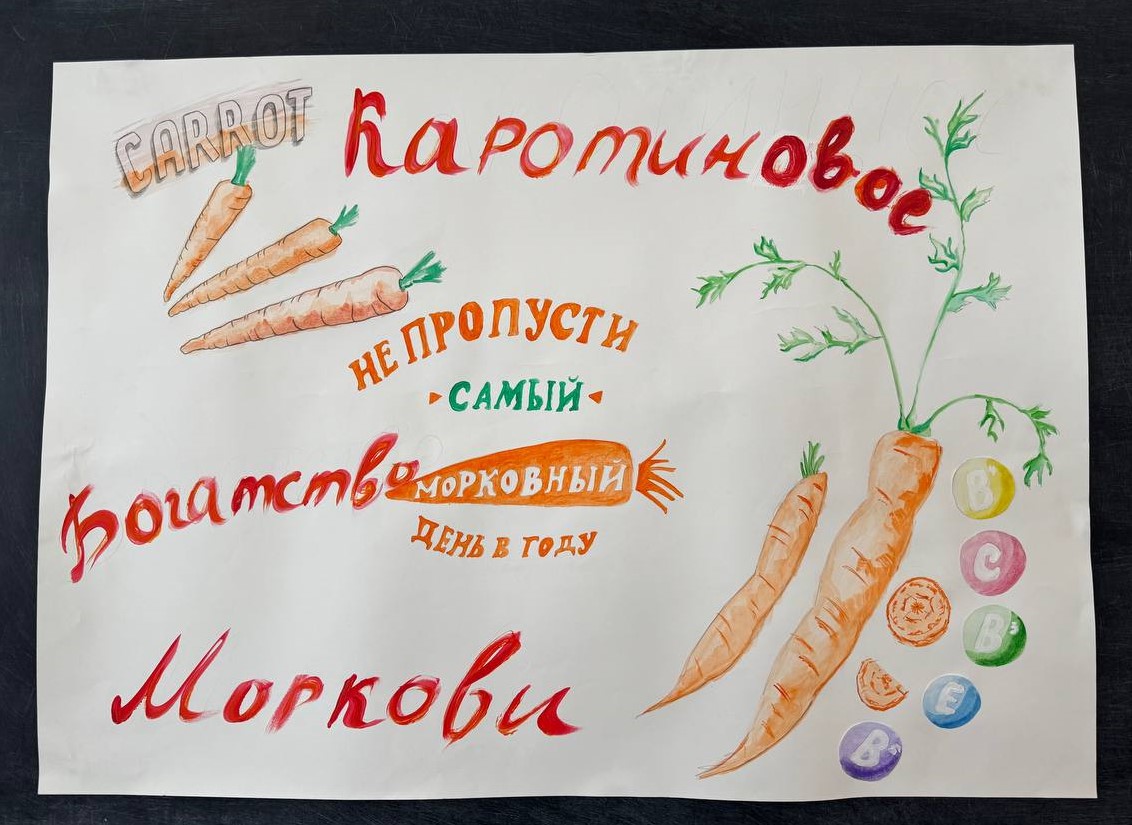 CARROT
Каротиновое
НЕ ПРОПУСТИ
САМЫЙ
Богатство
МОРКОВНЫЙ
ДЕНЬ В ГОДУ
Моркови
B
C
B³
E